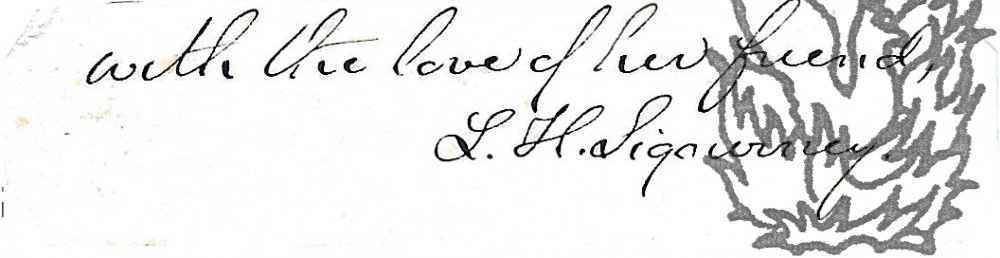 with the love of her friend,
L. H. Sigourney.